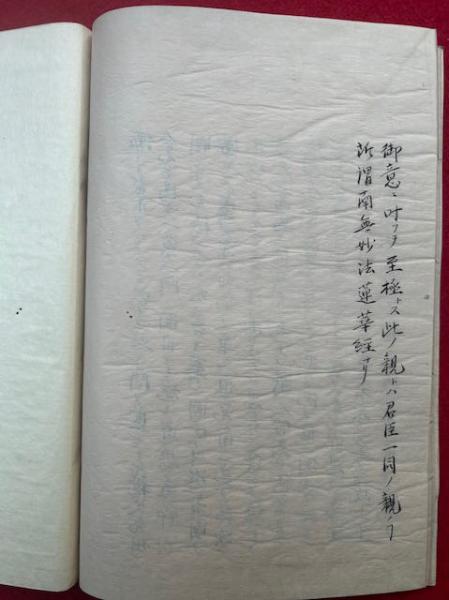 御意ニ叶フヲ至極トス此ノ親トハ君臣一同ノ親ノフ
所謂南無妙法蓮華経ナリ